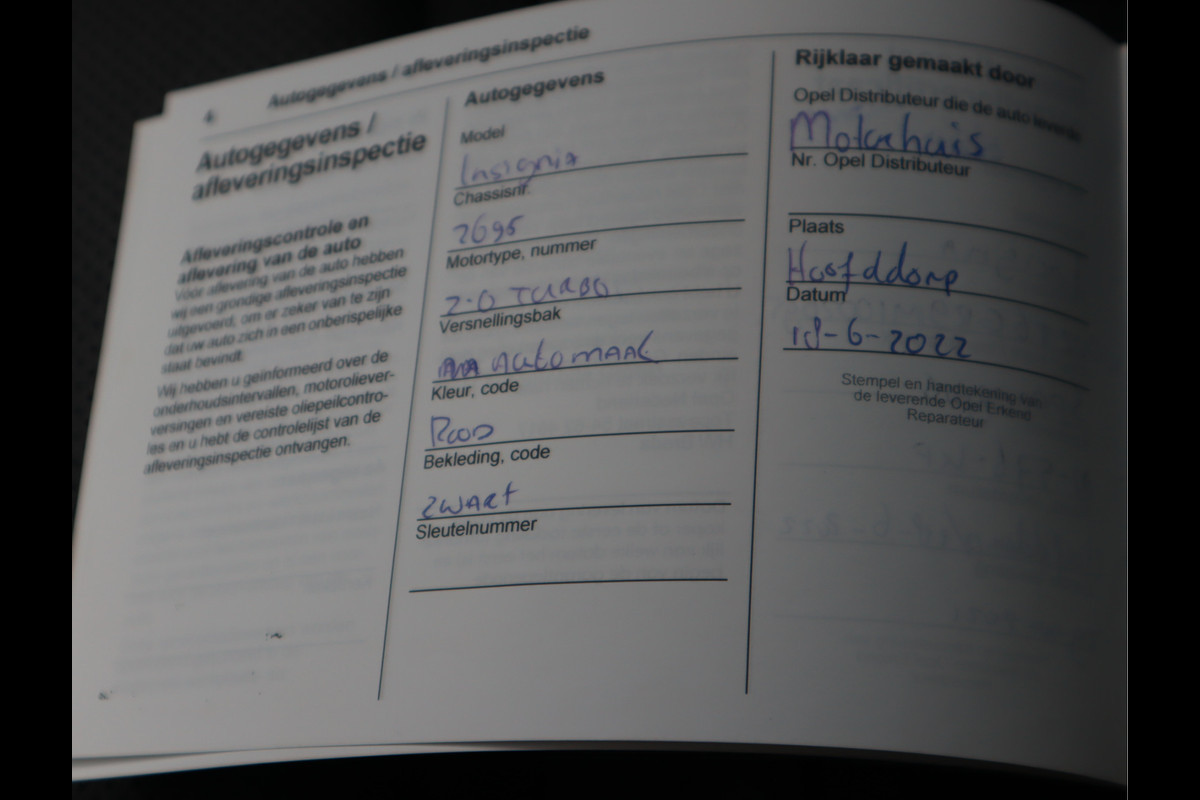 4
Autogegevens / afleveringsinspectie
Autogegevens /
afleveringsinspectie
Afleveringscontrole en
aflevering van de auto
Vóór aflevering van de auto hebben
wij een grondige afleveringsinspectie
uitgevoerd, om er zeker van te zijn
dat uw auto zich in een onberispelijke
staat bevindt.
Wij hebben u geïnformeerd over de
onderhoudsintervallen, motoroliever-
versingen en vereiste oliepeilcontro-
les en u hebt de controlelijst van de
afleveringsinspectie ontvangen.
Autogegevens
Model
Insignia
Chassisnr.
2695
Motortype, nummer
2.0 TURBO
Versnellingsbak
Automaat
Kleur, code
Rood
Bekleding, code
ZWART
Sleutelnummer
Rijklaar gemaakt door
Opel Distributeur die de auto leverde
Motorhuis
Nr. Opel Distributeur
Plaats
Hoofddorp
Datum
18-6-2022
Stempel en handtekening van
de leverende Opel Erkend
Reparateur